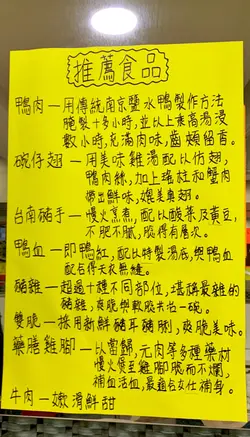 推薦食品
鴨肉—用傳統南京鹽水鴨製作方法
醃製十多小時,並以上素高湯浸
數小時,充滿肉味,齒頰留香。
碗仔翅—用美味雞湯配以仿翅,
鴨肉絲,加上瑤柱和蟹肉
帶出鮮味,媲美魚翅。
台南豬手—慢火烹煮,配以酸菜及黃豆,
不肥不膩,腍得有層次。
鴨血—即鴨紅,配以特製湯底,與鴨血
配合得天衣無縫。
豬雜—超過十種不同部位,堪稱最雜的
豬雜,爽脆與軟腍共冶一碗。
雙脆—採用新鮮豬耳豬脷,爽脆美味。
藥膳雞腳—以當歸,元肉等多種藥材
慢火煲至雞腳脆而不爛,
補血活血,最適合女仕補身。
牛肉—嫩滑鮮甜